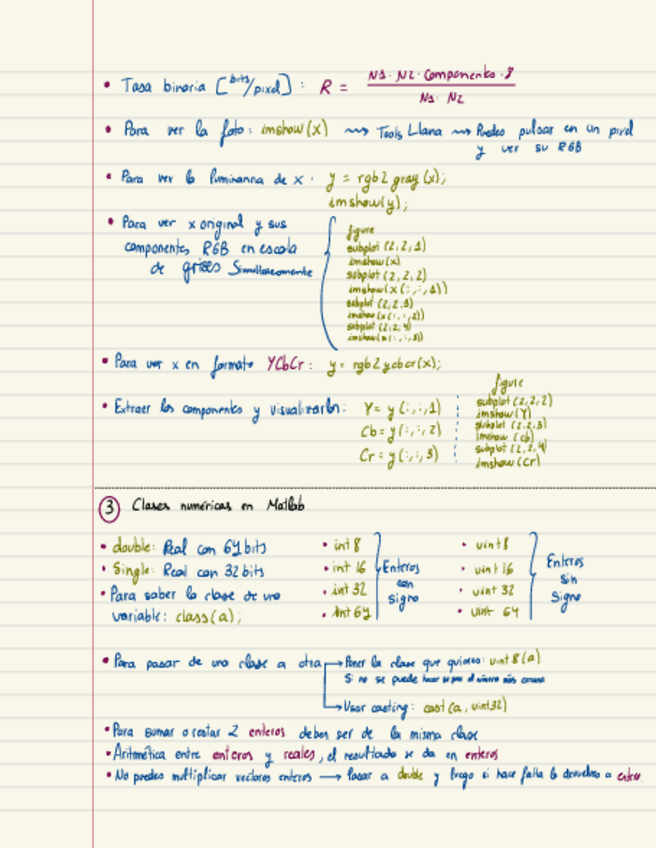 • Tasa binaria [bits/pixel]: R = N1 · N2 · Componente · 8 / N1 · N2
• Para ver la foto: imshow(x) ⇝ Tools Llana ⇝ Puedes pulsar en un pixel
y ver su RGB
• Para ver la luminancia de x: y = rgb2gray(x);
imshow(y);
• Para ver x original y sus
componentes RGB en escala
de grises Simultáneamente
figure
subplot(2,2,1)
imshow(x)
subplot(2,2,2)
imshow(x(:,:,1))
subplot(2,2,3)
imshow(x(:,:,2))
subplot(2,2,4)
imshow(x(:,:,3))
• Para ver x en formato YCbCr: y = rgb2ycbcr(x);
• Extraer los componentes y visualizarlos:
Y = y(:,:,1)
Cb = y(:,:,2)
Cr = y(:,:,3)
figure
subplot(2,2,2)
imshow(Y)
subplot(2,2,3)
imshow(Cb)
subplot(2,2,4)
imshow(Cr)
3 Clases numéricas en Matlab
• double: Real con 64 bits
• Single: Real con 32 bits
• Para saber la clase de una
variable: class(a);
• int 8
• int 16
• int 32
• int 64
Enteros
con
signo
• uint 8
• uint 16
• uint 32
• uint 64
Enteros
sin
Signo
• Para pasar de una clase a otra → Poner la clase que quieres: uint8(a)
Si no se puede hacer se pone el número más cercano
→ Usar casting: cast(a, uint32)
• Para sumar o restar 2 enteros deben ser de la misma clase
• Aritmética entre enteros y reales, el resultado se da en enteros
• No puedes multiplicar vectores enteros → Pasar a double y luego si hace falta lo devuelves a entero